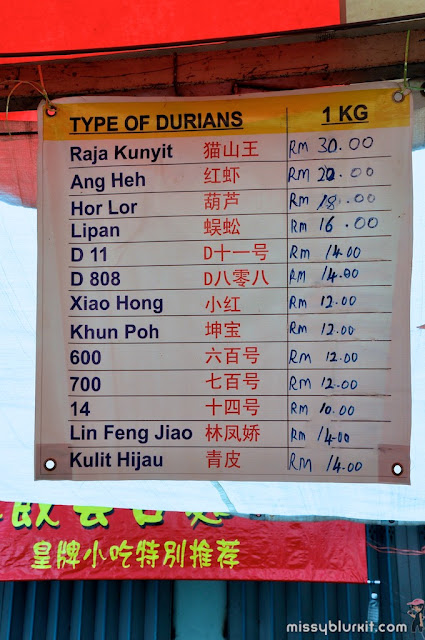 TYPE OF DURIANS 1 KG
Raja Kunyit 猫山王 RM 30.00
Ang Heh 红虾 RM 20.00
Hor Lor 葫芦 RM 18.00
Lipan 蜈蚣 RM 16.00
D 11 D十一号 RM 14.00
D 808 D八零八 RM 14.00
Xiao Hong 小红 RM 12.00
Khun Poh 坤宝 RM 12.00
600 六百号 RM 12.00
700 七百号 RM 12.00
14 十四号 RM 10.00
Lin Feng Jiao 林凤娇 RM 14.00
Kulit Hijau 青皮 RM 14.00
皇牌小吃特别推荐
missyblurkit.com